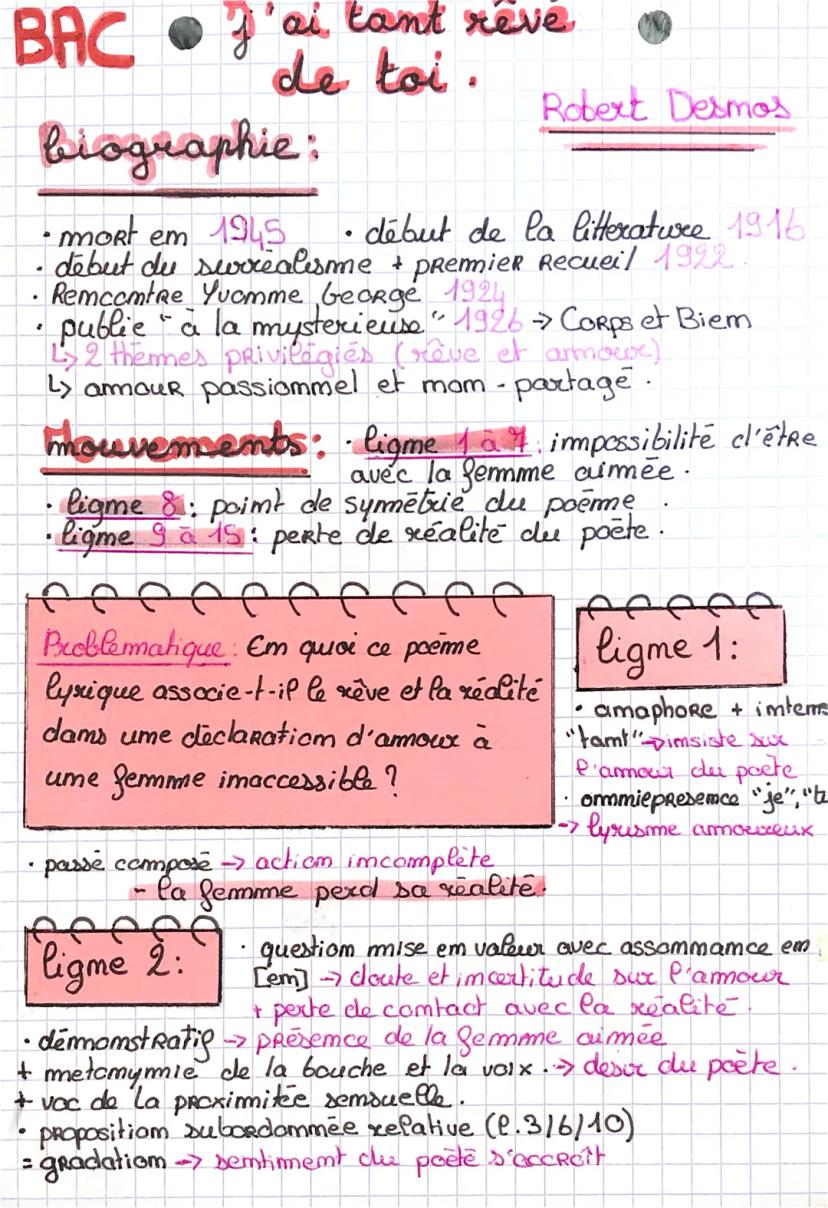 BAC • J'ai tant rêvé
de toi.
Robert Desnos
biographie:
• mort en 1945 • début de la litterature 1916
• début du surréalisme + premier recueil 1922.
• Rencontre Yvonne George 1924
• publie "à la mysterieuse" 1926 → Corps et Bien
↳ 2 thèmes privilégiés (rêve et amour)
↳ amour passionnel et non-partagé.
mouvements: • ligne 1 à 7: impossibilité d'être
avec la femme aimée.
• ligne 8: point de symmétrie du poème.
• ligne 9 à 15: perte de réalité du poète.
Problematique: En quoi ce poème
lyrique associe-t-il le rêve et la réalité
dans une déclaration d'amour à
une femme inaccessible?
ligne 1:
• anaphore + intens
"tant" → insiste sur
l'amour du poète
• omniepresence "je", "t
→ lyrisme amoureux
• passé composé → action incomplète
- la femme perd sa réalité.
ligne 2:
• question mise en valeur avec assonnance en
[en] → doute et incertitude sur l'amour
+ perte de contact avec la réalité.
• démonstratif → présence de la femme aimée
+ metonymie de la bouche et la voix. → desir du poète.
+ voc de la proximitée sensuelle.
• proposition subordonnée relative (l.3/6/10)
= gradation → sentiment du poète s'accroît